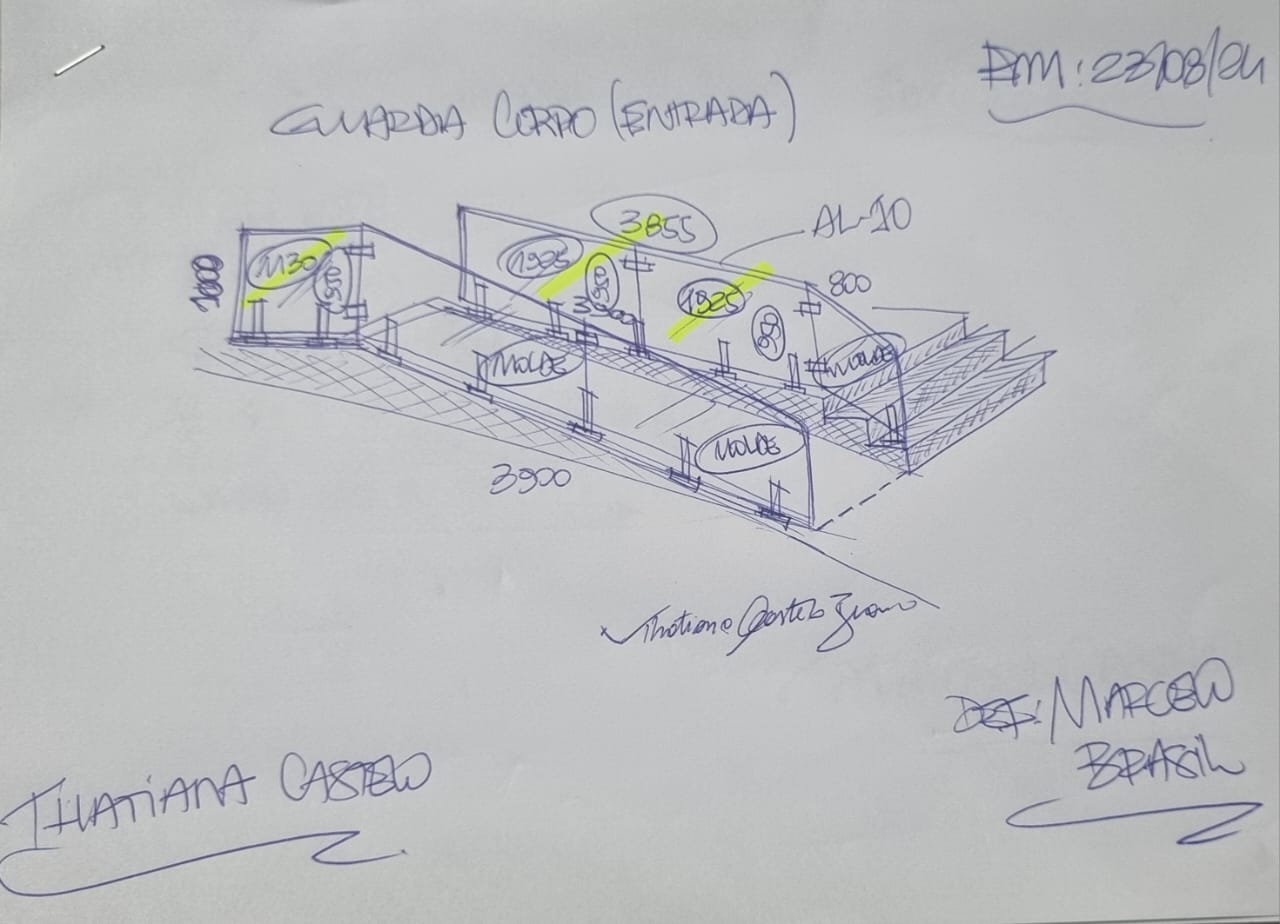 EM: 23/08/24
GUARDA CORPO (ENTRADA)
3855
AL-10
1925
1130
950
1000
950
1925
800
3900
950
MOLDE
MOLDE
MOLDE
3900
Thatiana Castelo
DEF: MARCELO
BRASIL
THATIANA CASTELO